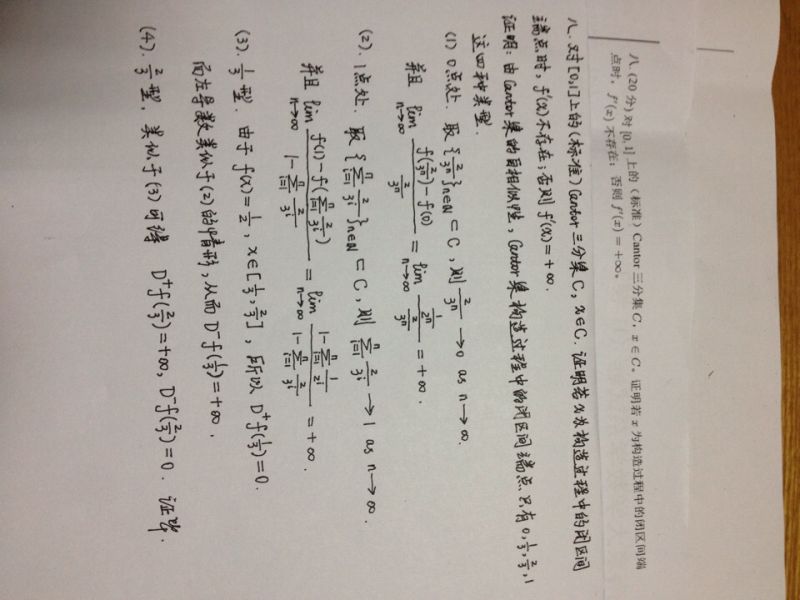 八、(20 分) 对 [0,1] 上的（标准）Cantor 三分集 C, x ∈ C。证明若 x 为构造过程中的闭区间端
点时，f'(x) 不存在；否则 f'(x) = +∞。
八. 对[0,1]上的(标准)Cantor三分集C, x∈C. 证明若x为构造过程中的闭区间
端点时, f'(x)不存在; 否则 f'(x)=+∞.
证明: 由Cantor集的自相似性, Cantor集构造过程中的闭区间端点只有0, 1/3, 2/3, 1
这四种类型.
(1) 0点处. 取{2/3ⁿ}n∈N ⊂ C, 则 2/3ⁿ → 0 as n→∞.
并且 lim n→∞ (f(2/3ⁿ) - f(0)) / (2/3ⁿ) = lim n→∞ (1/2ⁿ) / (2/3ⁿ) = +∞.
(2). 1点处. 取{∑ⁿi=1 2/3ⁱ}n∈N ⊂ C, 则 ∑ⁿi=1 2/3ⁱ → 1 as n→∞.
并且 lim n→∞ (f(1) - f(∑ⁿi=1 2/3ⁱ)) / (1 - ∑ⁿi=1 2/3ⁱ) = lim n→∞ (1 - ∑ⁿi=1 1/2ⁱ) / (1 - ∑ⁿi=1 2/3ⁱ) = +∞.
(3). 1/3型. 由于f(x)=1/2, x∈[1/3, 2/3], 所以 D⁺f(1/3)=0.
而左导数类似于(2)的情形, 从而 D⁻f(1/3)=+∞.
(4). 2/3型, 类似于(3)可得 D⁺f(2/3)=+∞, D⁻f(2/3)=0. 证毕.